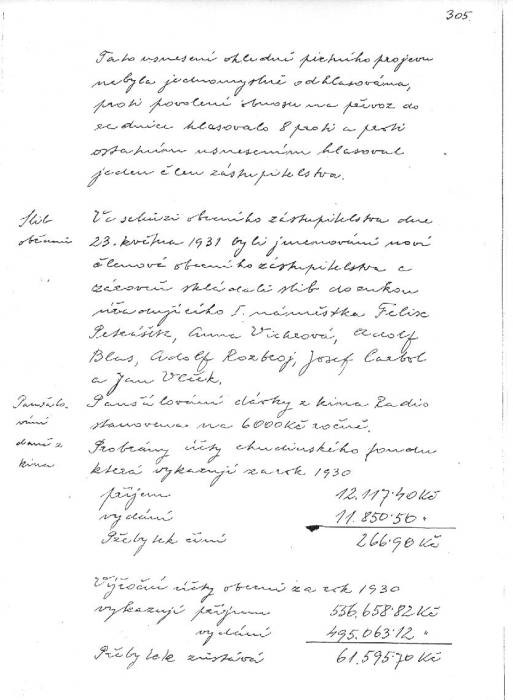 305.
Tato usnesení ohledně pietního projevu
nebyla jednomyslně odhlasována,
proti povolení obnosu na převoz do
Lednice hlasovalo 8 proti a proti
ostatním usnesením hlasoval
jeden člen zastupitelstva.
Slib
občanů
Ve schůzi obecního zastupitelstva dne
23. května 1931 byli jmenováni noví
členové obecního zastupitelstva a
zároveň skládali slib do rukou
úřadujícího I. náměstka Felix
Petrášek, Anna Vichrová, Adolf
Blas, Adolf Rozbroj, Josef Carbol
a Jan Vlček.
Paušalo-
vání
daně z
kina
Paušálování dávky z kina Radio
stanovena na 6000 Kč ročně.
Probrány účty chudinského fondu
která vykazují za rok 1930
příjem 12.117·40 Kč
vydání 11.850·50 "
Přebytek činí 266·90 Kč
Výroční účty obecní za rok 1930
vykazují příjem 556.658·82 Kč
vydání 495.063·12 "
Přebytek zůstává 61.595·70 Kč